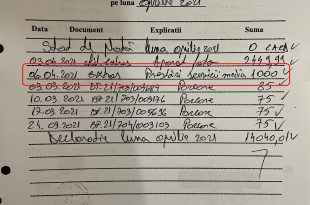 pe luna aprilie 2021
Data Document Explicatii Suma
Stat de plată luna aprilie 2021 0
23.04.2021 extras Aparat foto 2449,99 √
06.04.2021 extras Prestări servicii media 1000 √
03.03.2021 BF.21/703/ Parcare 85
10.03.2021 BF.21/703/003176 Parcare 75 √
17.03.2021 BF.21/703/005636 Parcare 75 √
24.03.2021 BF.21/704/003103 Parcare 75 √
Declaratie luna aprilie 2021 14040,01 √